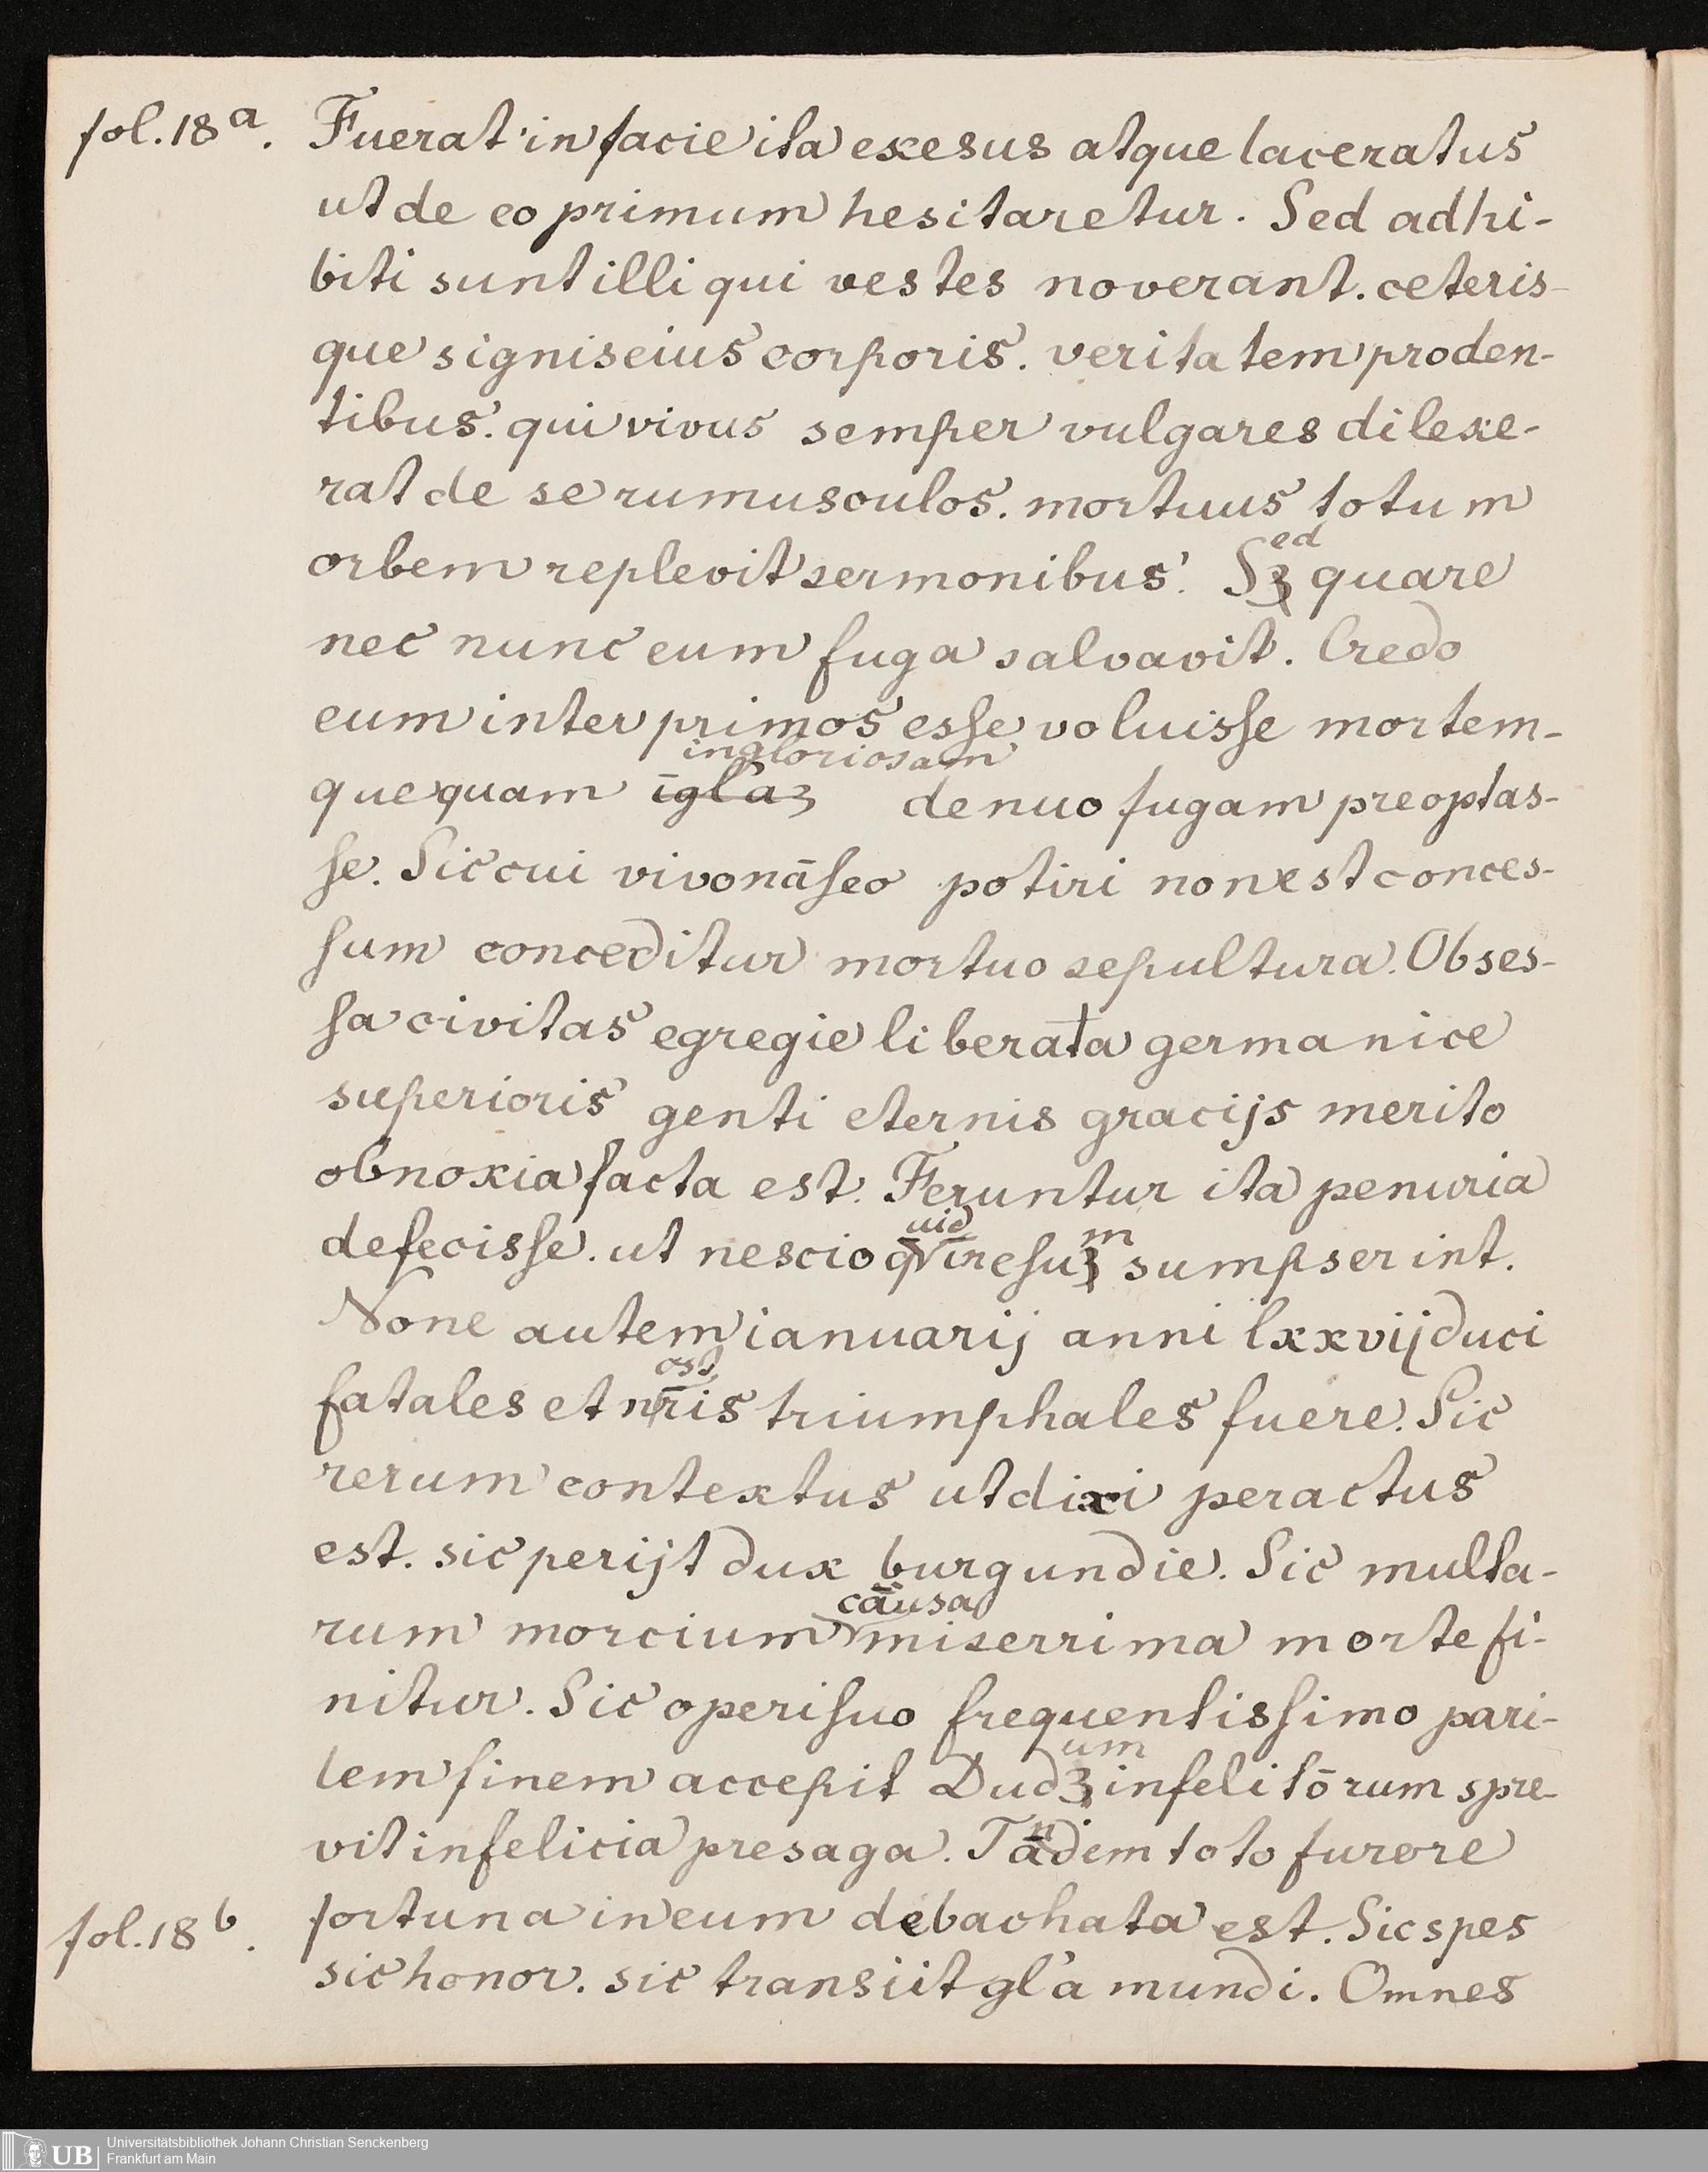 fol. 18 a. Fuerat in facie ita exesus atque laceratus
ut de eo primum hesitaretur. Sed adhi-
biti sunt illi qui vestes noverant. ceteris-
que signis eius corporis. veritatem proden-
tibus. qui vivus semper vulgares dilexe-
rat de se rumusculos. mortuus totum
ed
orbem replevit sermonibus. Sꝫ quare
nec nunc eum fuga salvavit. Credo
eum inter primos esse voluisse mortem-
ingloriosam
que quam īgl'aꝫ denuo fugam preoptas-
se. Sic cui vivo nāseo potiri non est conces-
sum conceditur mortuo sepultura. Obses-
sa civitas egregie liberata germanice
superioris genti eternis gracijs merito
obnoxia facta est. Feruntur ita penuria
uid m
defecisse. ut nescio q iresuꝫ sumpserint.
None autem ianuarij anni lxxvij duci
ost
fatales et nr̄is triumphales fuere. Sic
rerum contextus ut dixi peractus
est. sic perijt dux burgundie. Sic multa-
causa
rum morcium miserrima morte fi-
nitur. Sic operi suo frequentissimo pari-
um
lem finem accepit Dudꝫ infelitōrum spre-
n
vit infelicia presaga. Tādem toto furore
fol. 18 b. fortuna in eum debachata est. Sic spes
sic honor. sic transiit gl'a mundi. Omnes
UB Universitätsbibliothek Johann Christian Senckenberg
Frankfurt am Main